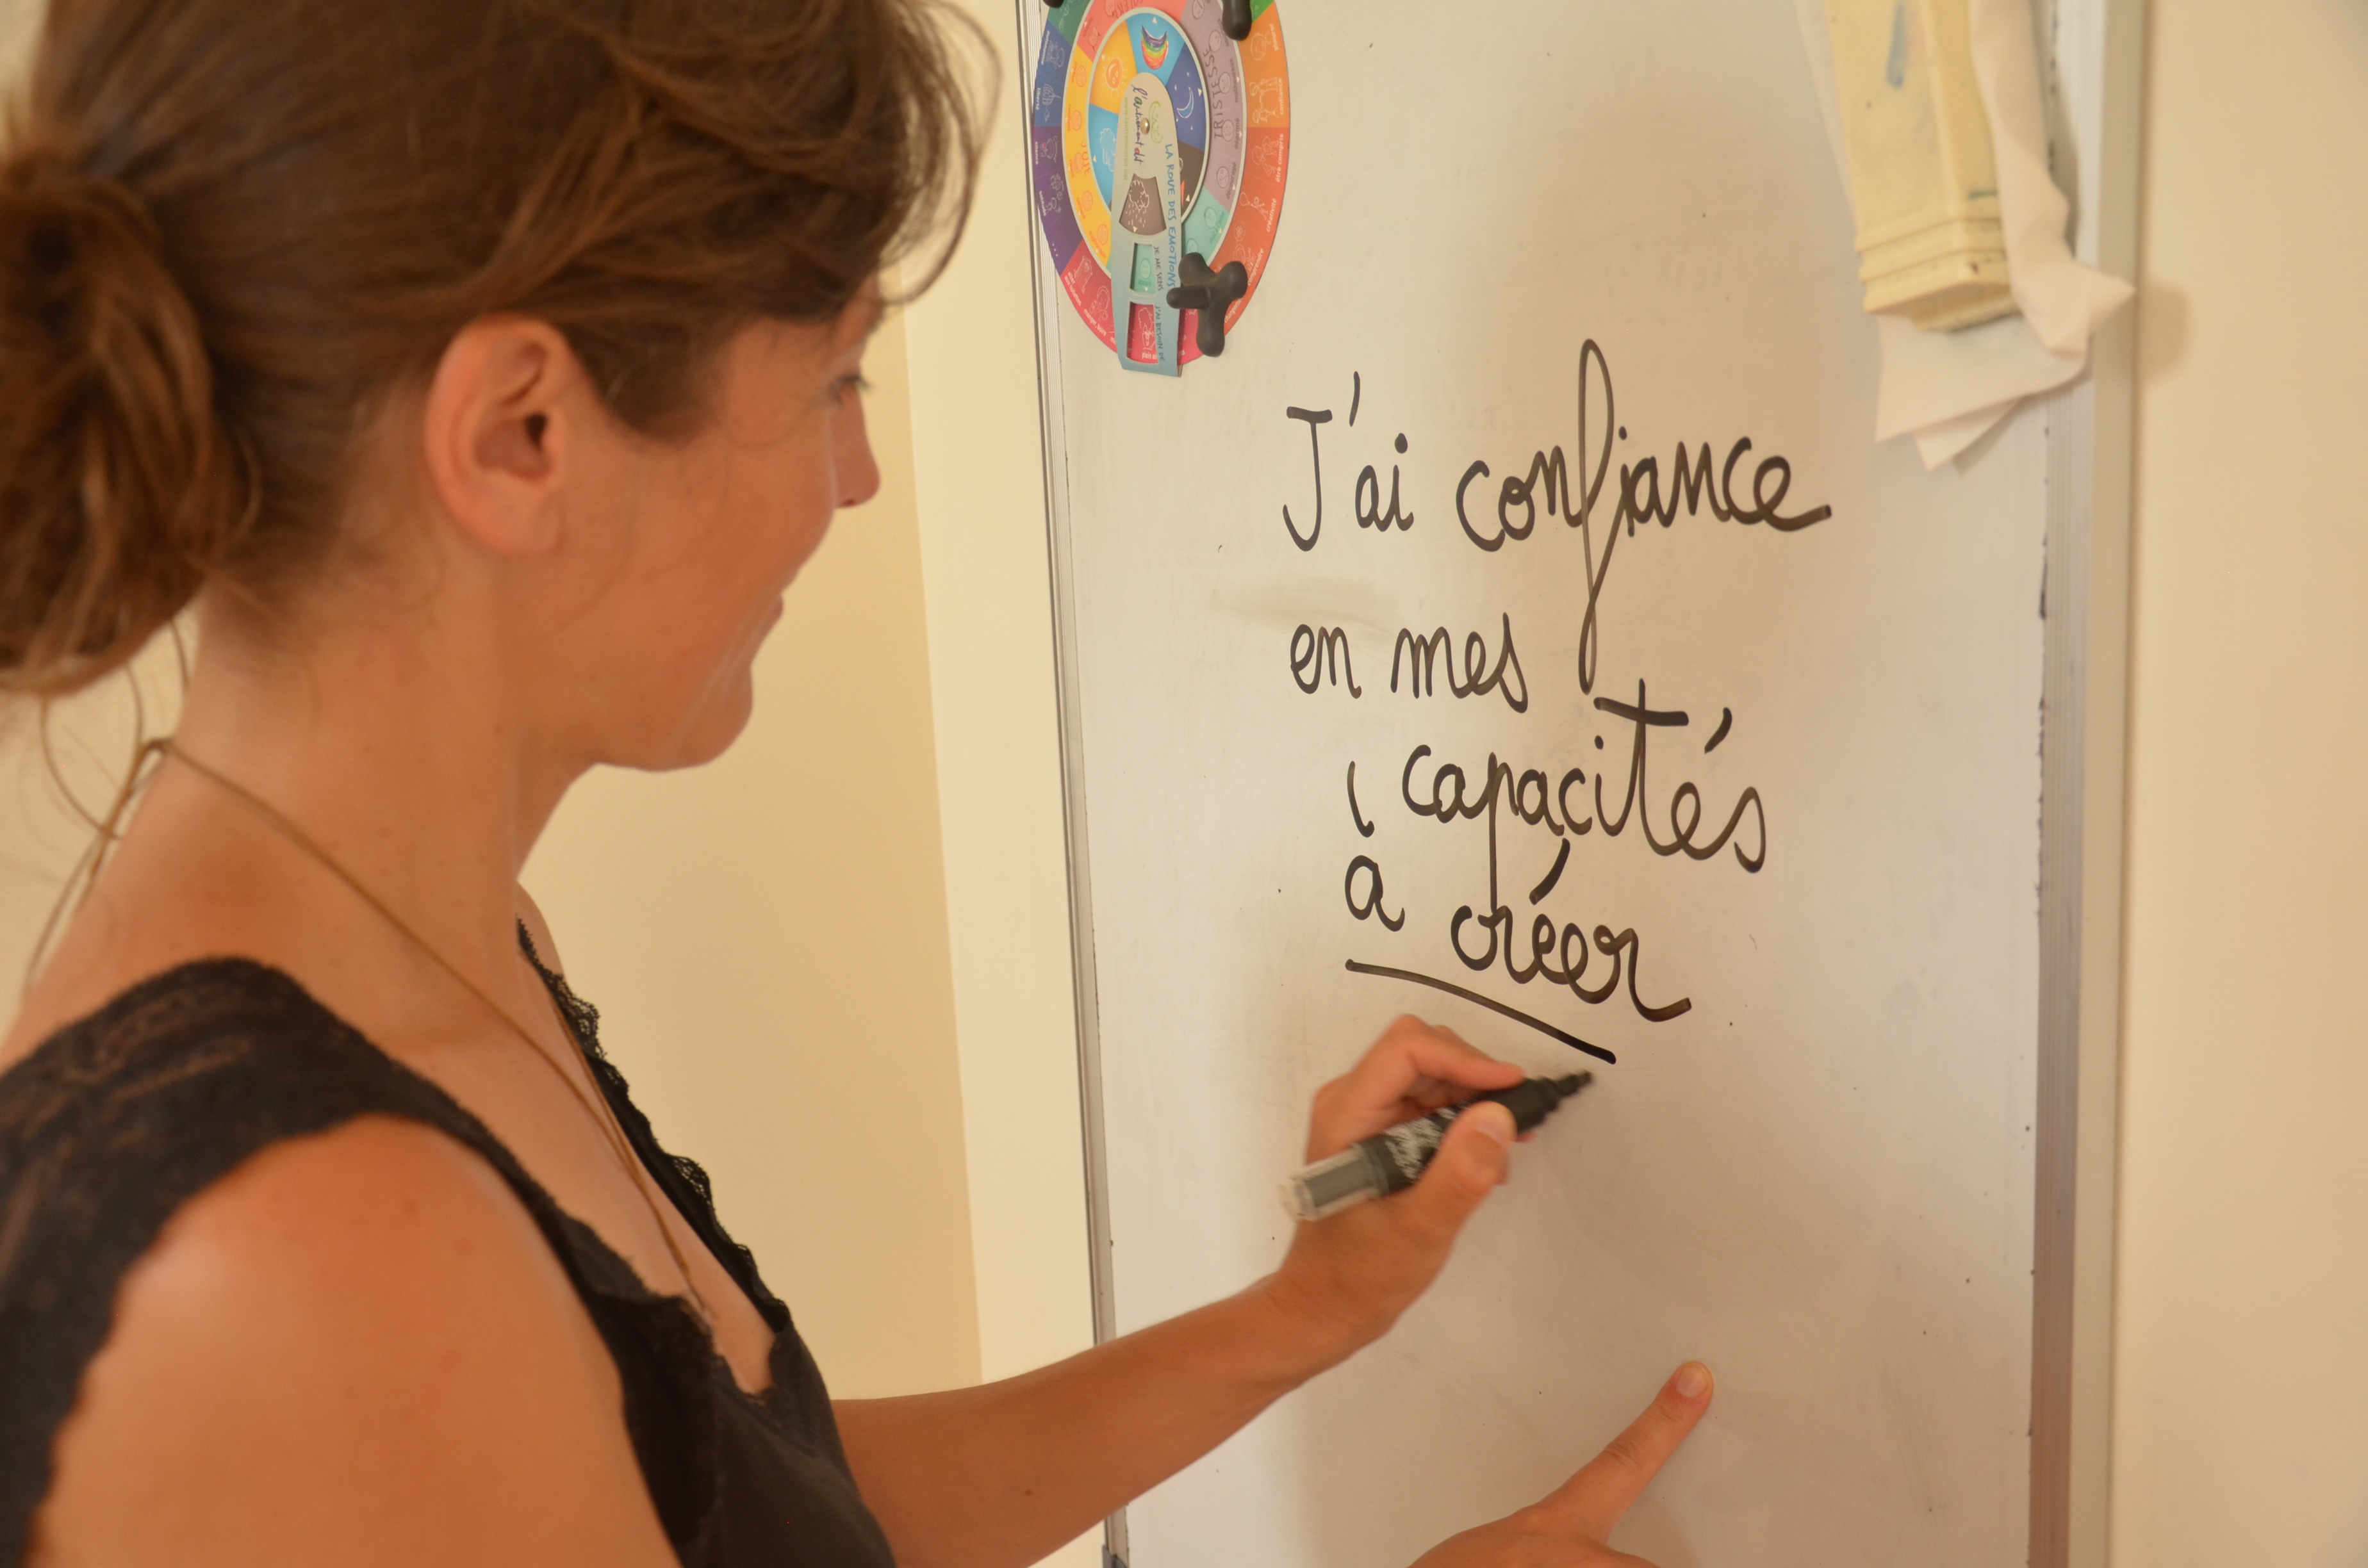 l'autrement dit
LA ROUE DES EMOTIONS
JE ME SENS
J'AI BESOIN DE
TRISTESSE
J'ai confiance
en mes
capacités
à créer